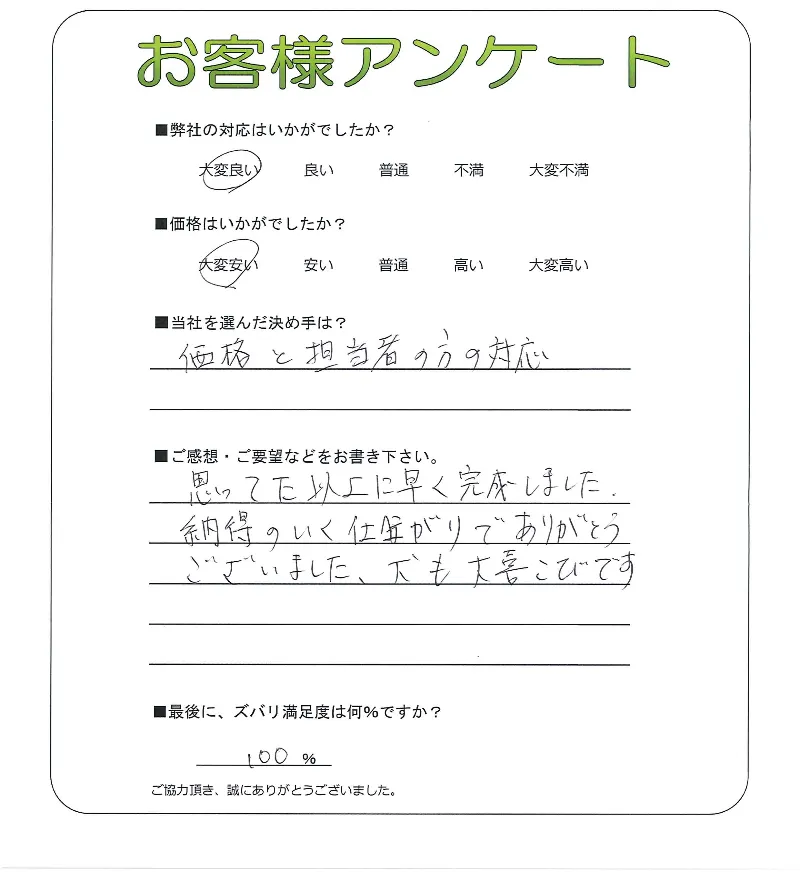 お客様アンケート
■弊社の対応はいかがでしたか？
大変良い 良い 普通 不満 大変不満
■価格はいかがでしたか？
大変安い 安い 普通 高い 大変高い
■当社を選んだ決め手は？
価格と担当者の方の対応
■ご感想・ご要望などをお書き下さい。
思ってた以上に早く完成しました.
納得のいく仕上がりでありがとう
ございました、犬も大喜こびです
■最後に、ズバリ満足度は何%ですか？
100 %
ご協力頂き、誠にありがとうございました。